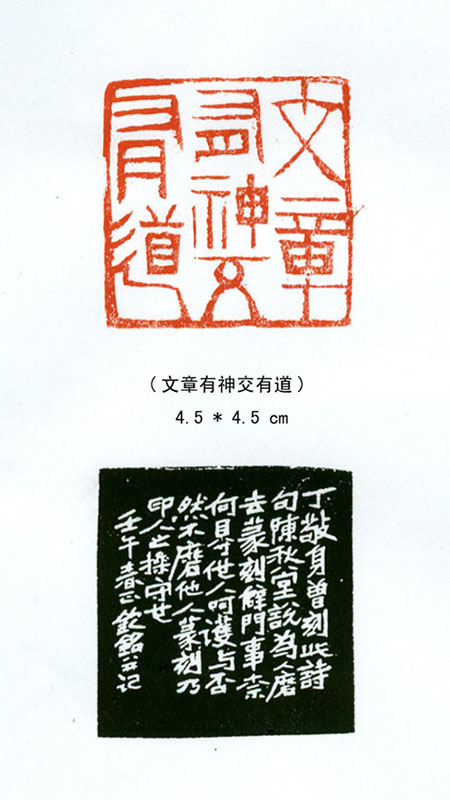 文章
有神交
有道
(文章有神交有道)
4.5 * 4.5 cm
丁敬身曾刻此詩
句陳秋堂說為人磨
去篆刻門事奈
何他人呵護与否
然不磨他人篆刻乃
印人之操守也
壬午春正欽銘并记